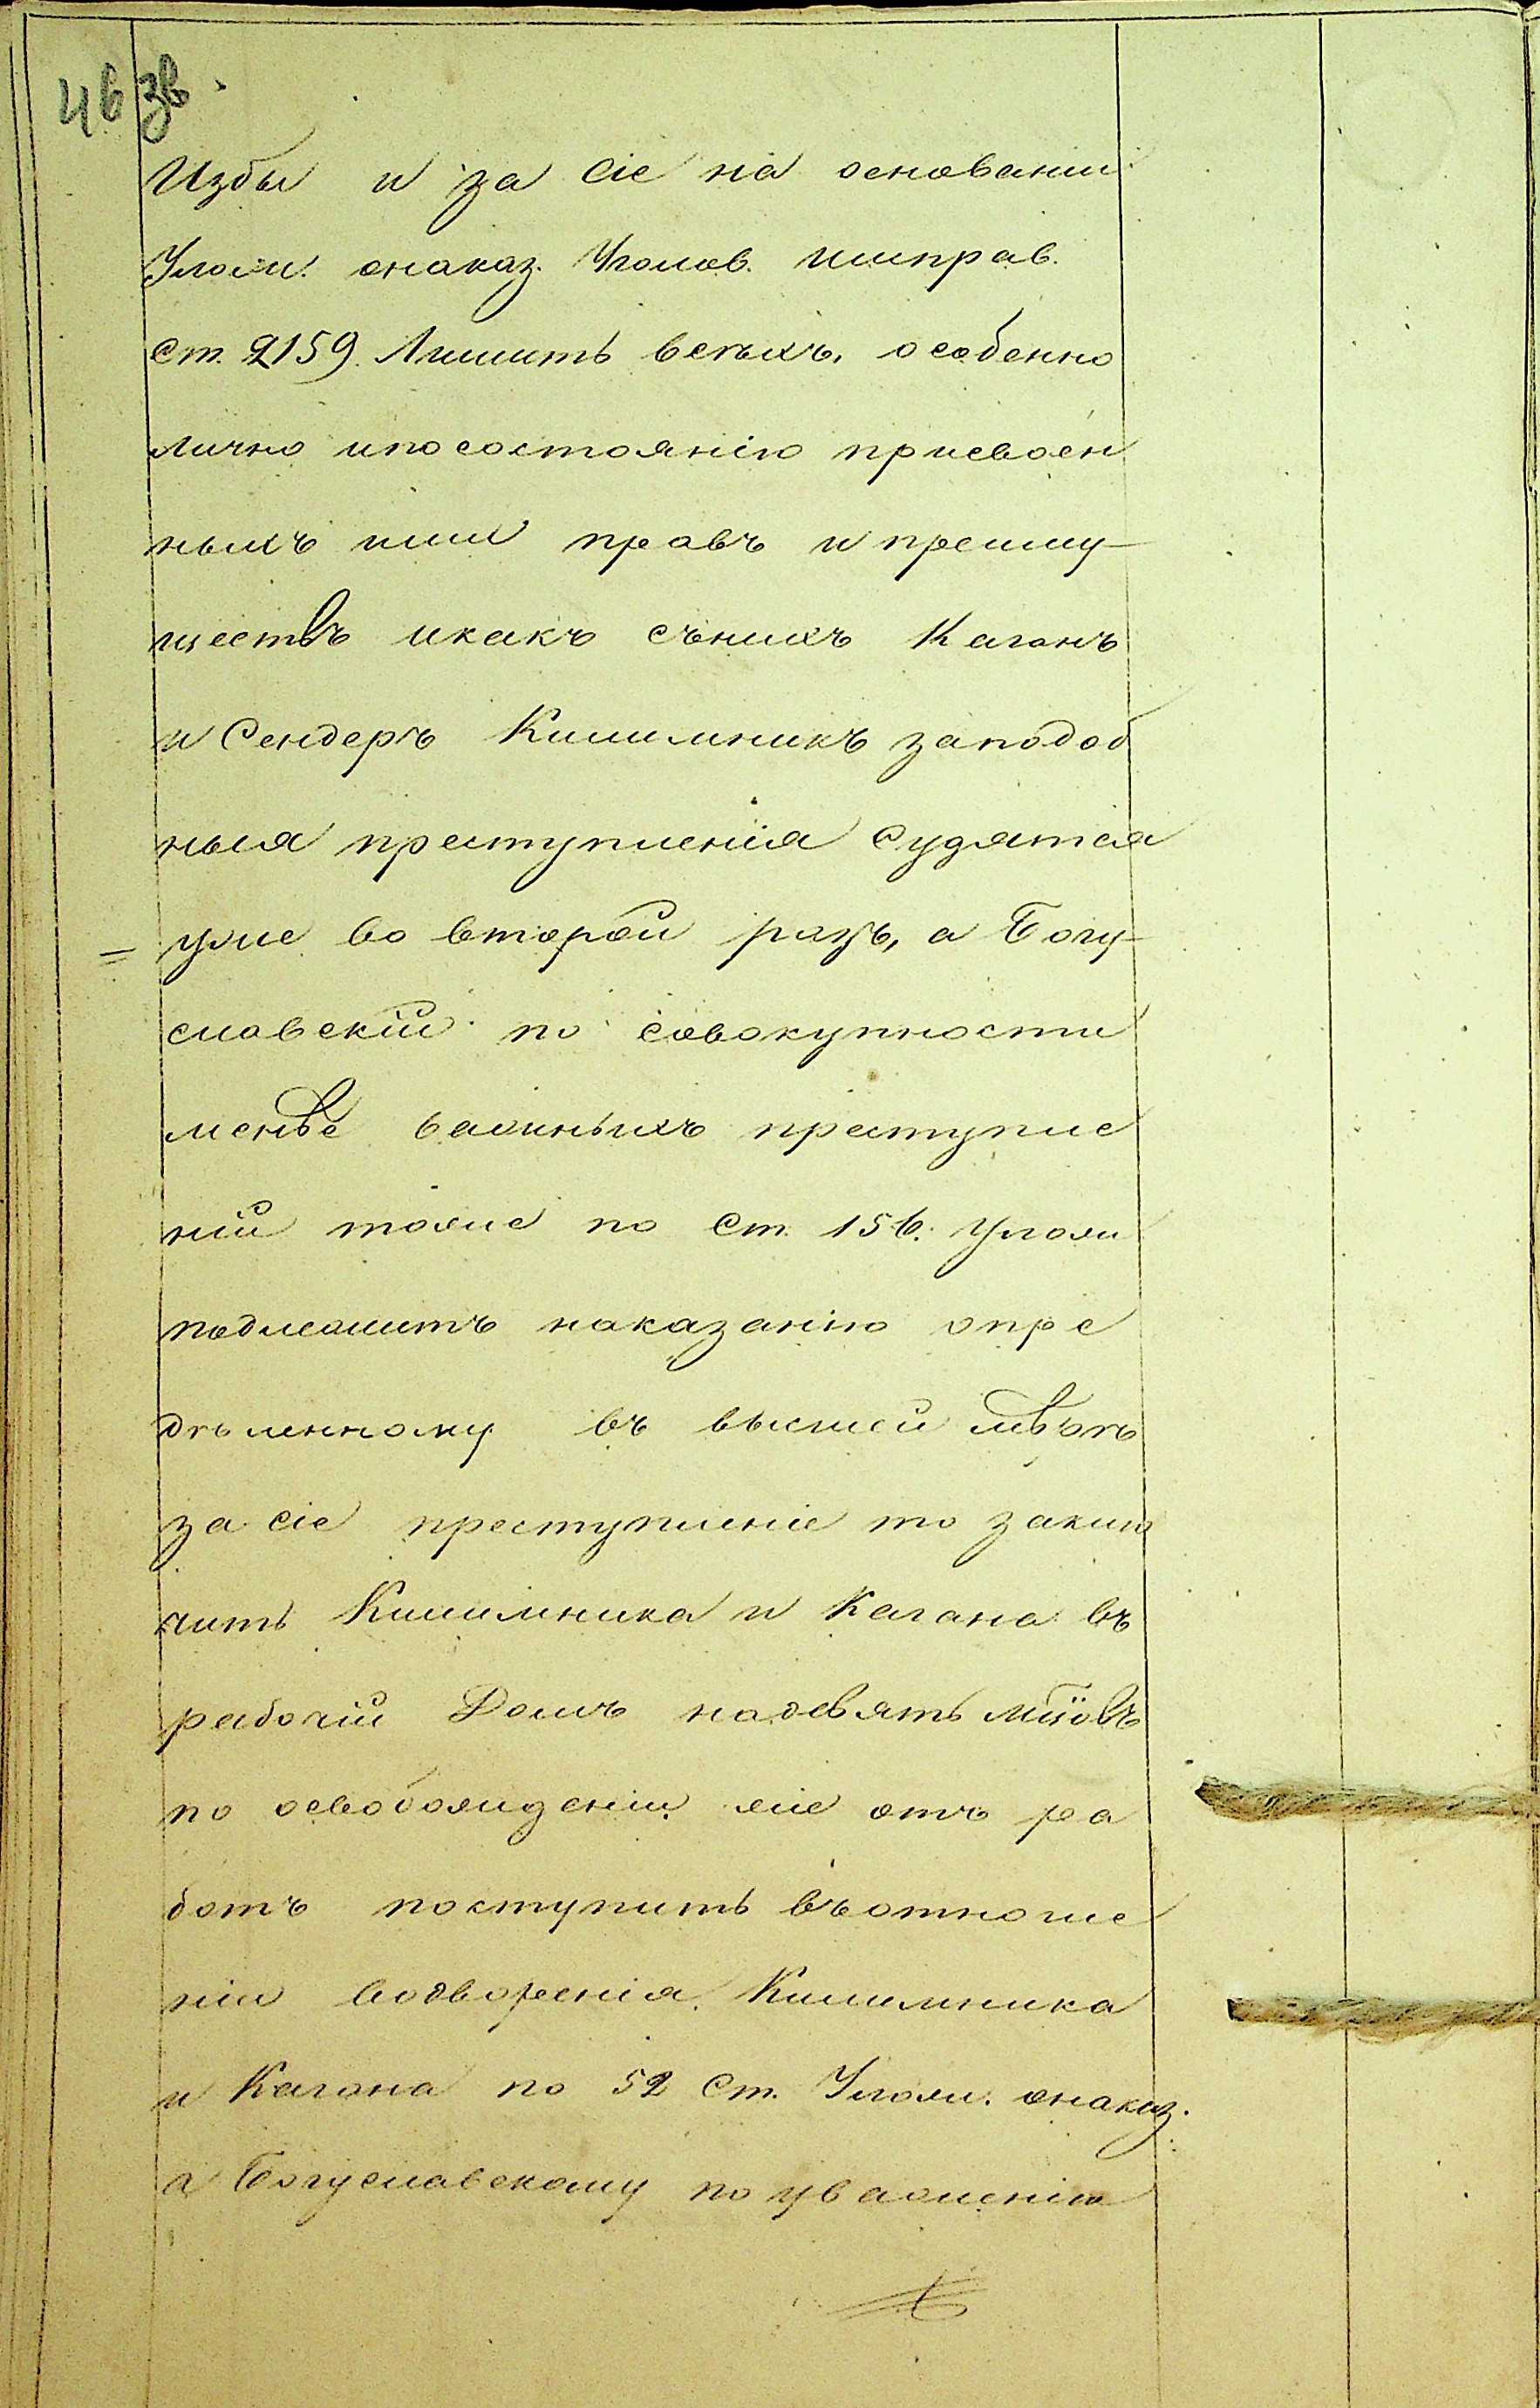 46 зв.
Избы и за сіе на основаніи
Улож. онаказ. Уголов. иисправ.
ст. 2159. Лишить всѣхъ, особенно
лично ипосостоянію присвоен
ныхъ ими правъ и преиму-
ществъ икакъ сънихъ Каганъ
и Сендеръ Килимникъ заподоб
ныя преступленія судятся
уже во второй разъ, а Богу-
славскій по совокупности
менѣе важныхъ преступле
ній тоже по Ст. 156. Улож
подлежитъ наказанію опре
дѣленному въ высшей мѣрѣ
за сіе преступленіе то заклю
чить Килимника и Кагана въ
рабочій Домъ надевять мцовъ
по освобожденіи же отъ ра
ботъ поступить въотноше
ніи водворенія Килимника
и Кагана по 52 Ст. Улож. онаказ.
а Богуславскому по уваженію